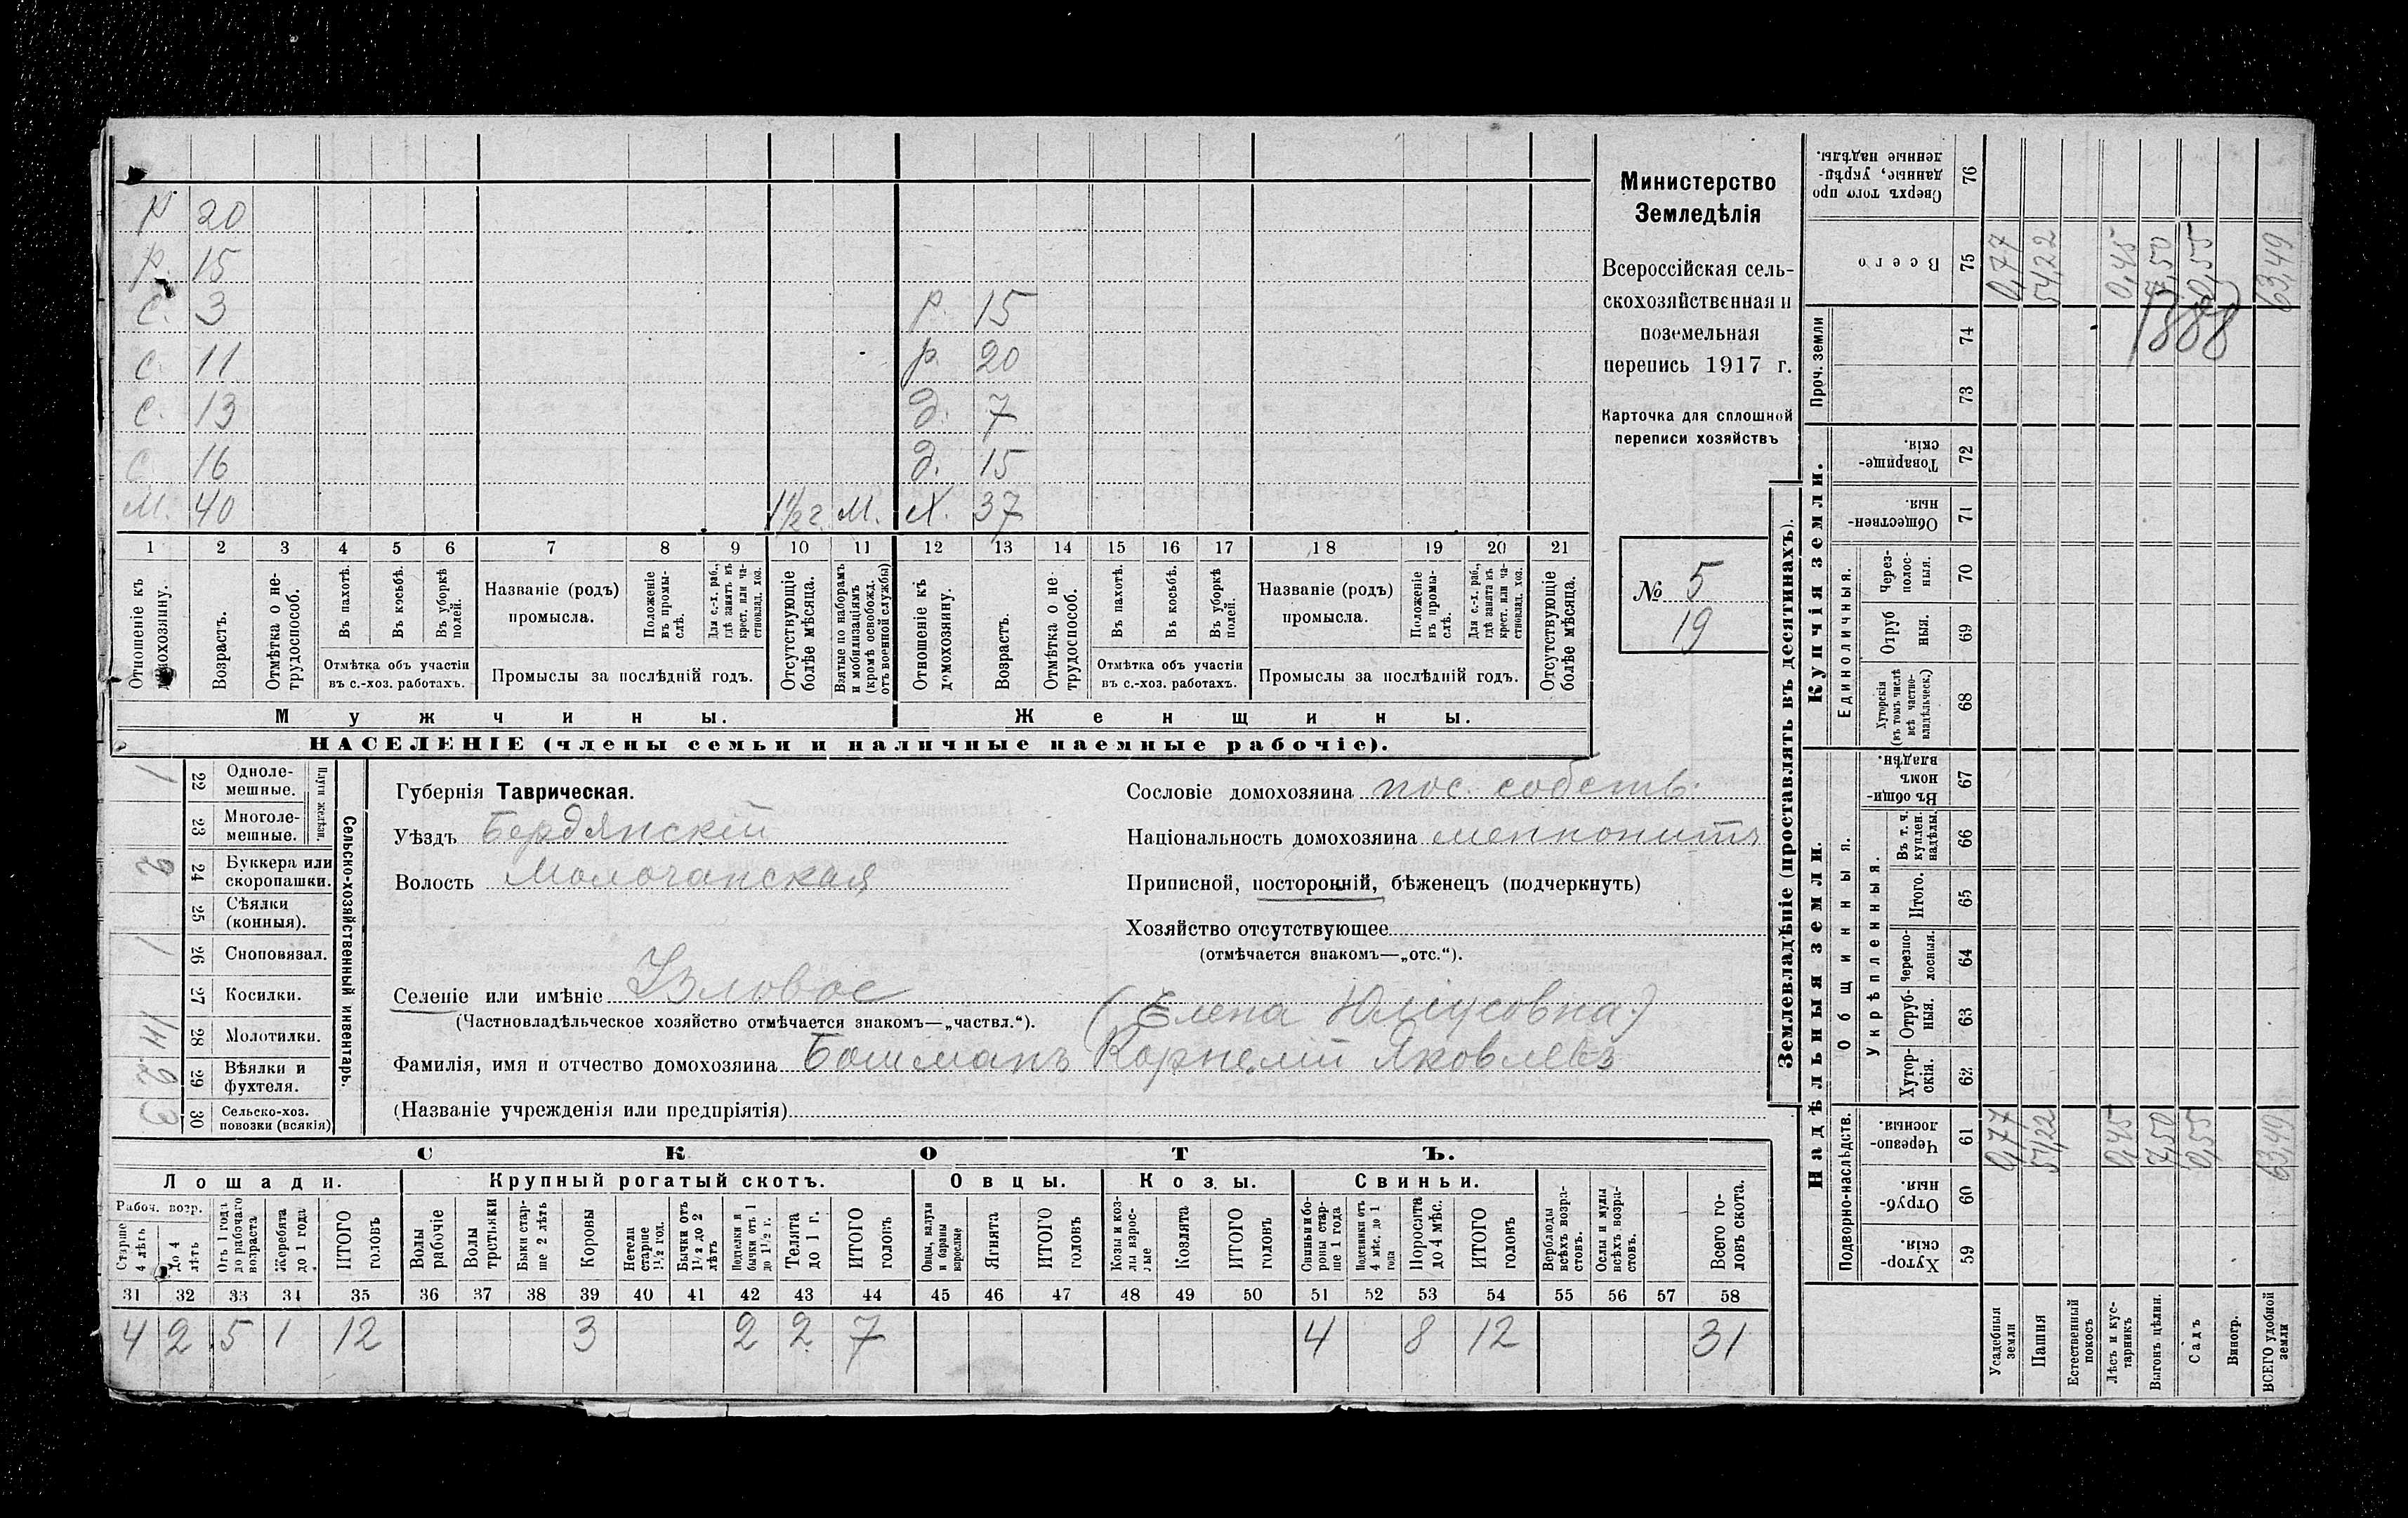 Р 20
р. 15
С. 3 р. 15
С. 11 р. 20
С. 13 д. 7
С. 16 д. 15
М. 40 1½ г. М. Х. 37
1 2 3 4 5 6 7 8 9 10 11 12 13 14 15 16 17 18 19 20 21
Отношеніе къ домохозяину.
Возрастъ.
Отмѣтка о нетрудоспособ.
Въ пахотѣ.
Въ косьбѣ.
Въ уборкѣ полей.
Отмѣтка объ участіи въ с.-хоз. работахъ.
Названіе (родъ) промысла.
Положеніе въ промыслѣ.
Для с.-х. раб., гдѣ занятъ въ крест. или частновлад. хоз.
Промыслы за послѣдній годъ.
Отсутствующіе болѣе мѣсяца.
Взятые по наборамъ и мобилизаціямъ (кромѣ освобожд. отъ военной службы)
Отношеніе къ домохозяину.
Возрастъ.
Отмѣтка о не трудоспособ.
Въ пахотѣ.
Въ косьбѣ.
Въ уборкѣ полей.
Отмѣтка объ участіи въ с.-хоз. работахъ.
Названіе (родъ) промысла.
Положеніе въ промыслѣ.
Для с.-х. раб., гдѣ занята въ крест. или частновлад. хоз.
Промыслы за послѣдній годъ.
Отсутствующіе болѣе мѣсяца.
Мужчины. Женщины.
НАСЕЛЕНІЕ (члены семьи и наличные наемные рабочіе).
Министерство
Земледѣлія
Всероссійская сель-
скохозяйственная и
поземельная
перепись 1917 г.
Карточка для сплошной
переписи хозяйствъ
№ 5
19
Сельско-хозяйственный инвентарь.
Плуги желѣзн.
22 Одноле-мешные. 1
23 Многоле-мешные.
24 Буккера или скоропашки. 2
25 Сѣялки (конныя).
26 Сноповязал. 1
27 Косилки.
28 Молотилки.
29 Вѣялки и фухтеля. 2
30 Сельско-хоз. повозки (всякія) 3
Губернія Таврическая.
Уѣздъ Бердянскій
Волость Молочанская
Селеніе или имѣніе
(Частновладѣльческое хозяйство отмѣчается знакомъ—„частвл.“).
(Елена Юліусовна)
Фамилія, имя и отчество домохозяина Бошманъ Корнелій Яковлевъ
(Названіе учрежденія или предпріятія)
Сословіе домохозяина пос. собств.
Національность домохозяина меннонитъ
Приписной, посторонній, бѣженецъ (подчеркнуть)
Хозяйство отсутствующее
(отмѣчается знакомъ—„отс.“).
СКОТЪ.
Лошади. Крупный рогатый скотъ. Овцы. Козы. Свиньи.
Рабоч. возр.
Старше 4 лѣтъ
До 4 лѣтъ
Отъ 1 года до рабочаго возраста
Жеребята до 1 года
ИТОГО головъ
Волы рабочіе
Волы третьяки
Быки старше 2 лѣтъ
Коровы
Нетели старше 1½ год.
Бычки отъ 1½ до 2 лѣтъ
Подтелки и бычки отъ 1 до 1½ г.
Телята до 1 г.
ИТОГО головъ
Овцы, валухи и бараны взрослые
Ягнята
ИТОГО головъ
Козы и козлы взрослые
Козлята
ИТОГО головъ
Свиньи и бороны старше 1 года
Подсвинки отъ 4 мѣс. до 1 года
Поросята до 4 мѣс.
ИТОГО головъ
Верблюды всѣхъ возрастовъ.
Ослы и мулы всѣхъ возрастовъ.
Всего головъ скота.
31 32 33 34 35 36 37 38 39 40 41 42 43 44 45 46 47 48 49 50 51 52 53 54 55 56 57 58
4 2 5 1 12 3 2 2 7 4 8 12 31
Землевладѣніе (проставлять въ десятинахъ).
Надѣльныя земли. Купчія земли. Проч. земли
Подворно-наслѣдств.
Общинныя.
Укрѣпленныя.
Единоличныя.
Сверхъ того проданные, укрѣпленные надѣлы. 76
Всего 75 0,77 54,22 0,45 7,50 0,55 63,49
1888
74
73
Товарищескія. 72
Общественныя. 71
Черезполосныя. 70
Отрубныя. 69
Хуторскія (въ томъ числѣ всѣ частновладѣльческ.) 68
Въ общинномъ владѣн. 67
Въ т. ч. куплен. надѣлы. 66
Итого. 65
Черезполосныя. 64
Отрубныя. 63
Хуторскія. 62
Черезполосныя. 61 0,77 54,22 0,45 7,50 0,55 63,49
Отрубныя. 60
Хуторскія. 59
Усадебныя земли
Пашня
Естественный покосъ
Лѣсъ и кустарникъ
Выгонъ цѣлин.
Садъ
Виногр.
ВСЕГО удобной земли